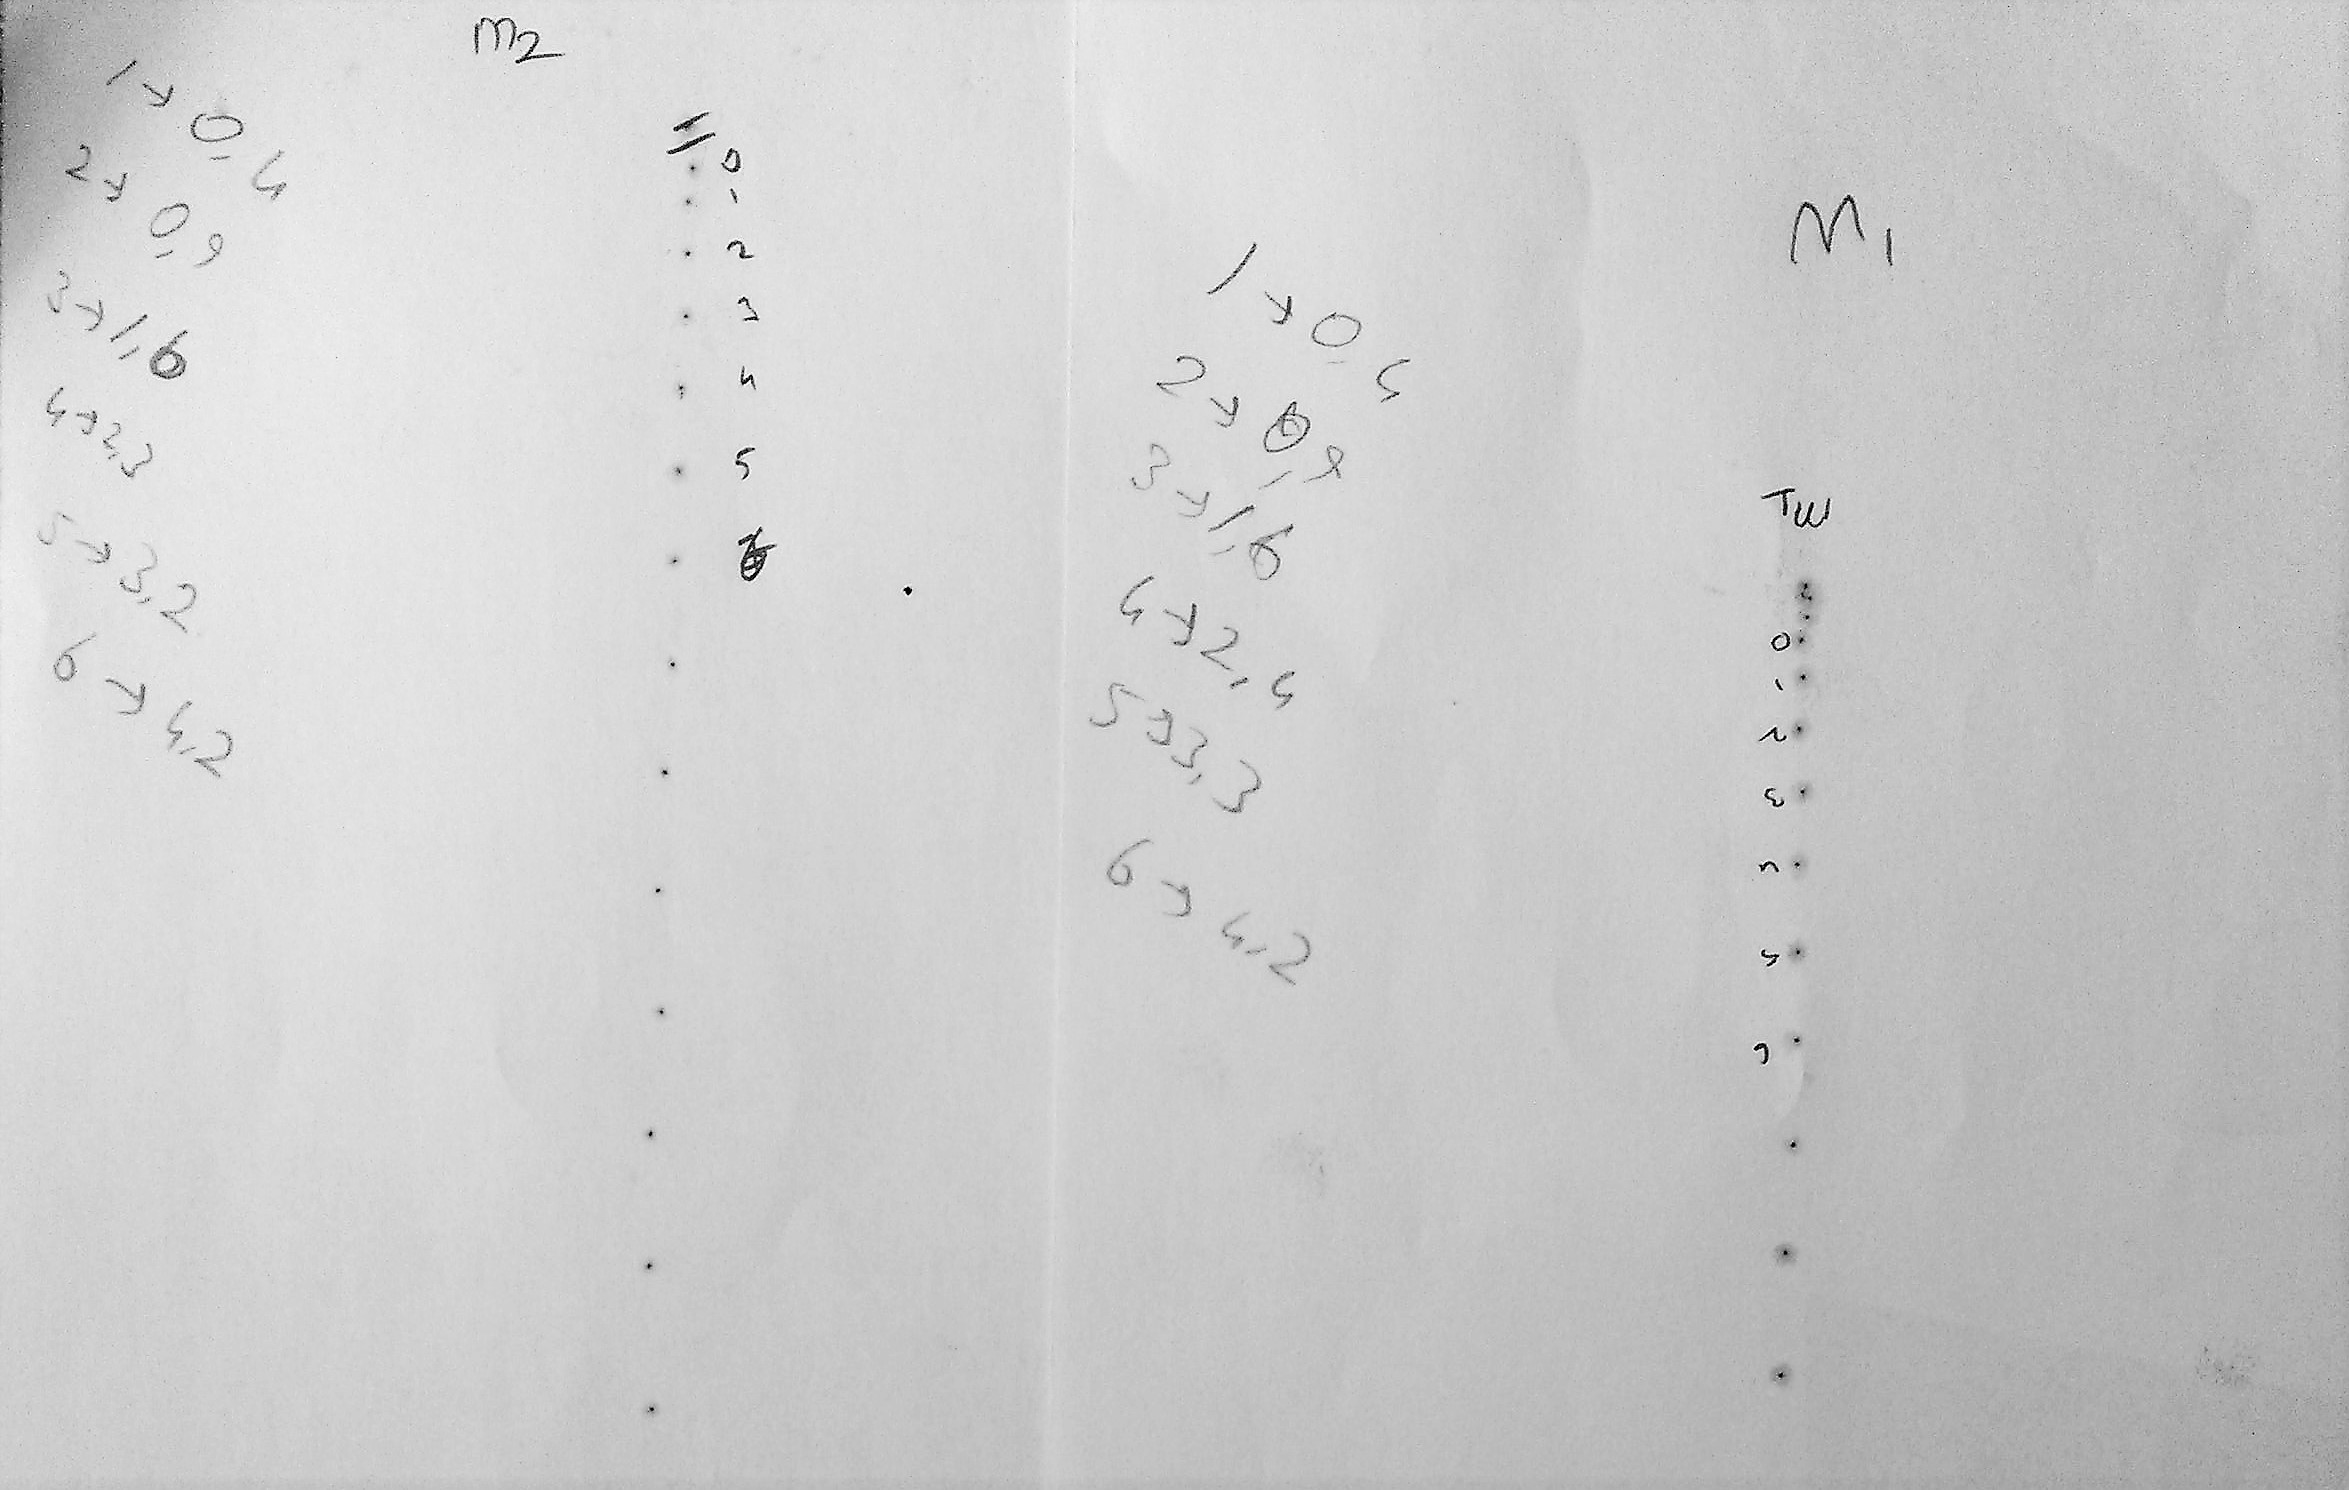 m2
1→0,4
2→0,9
3→1,6
4→2,3
5→3,2
6→4,2
0
1
2
3
4
5
6
M1
1→0,4
2→0,9
3→1,6
4→2,4
5→3,3
6→4,2
0
1
2
3
4
5